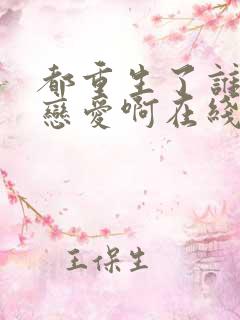 都重生了誰
戀愛啊在綫
王保生